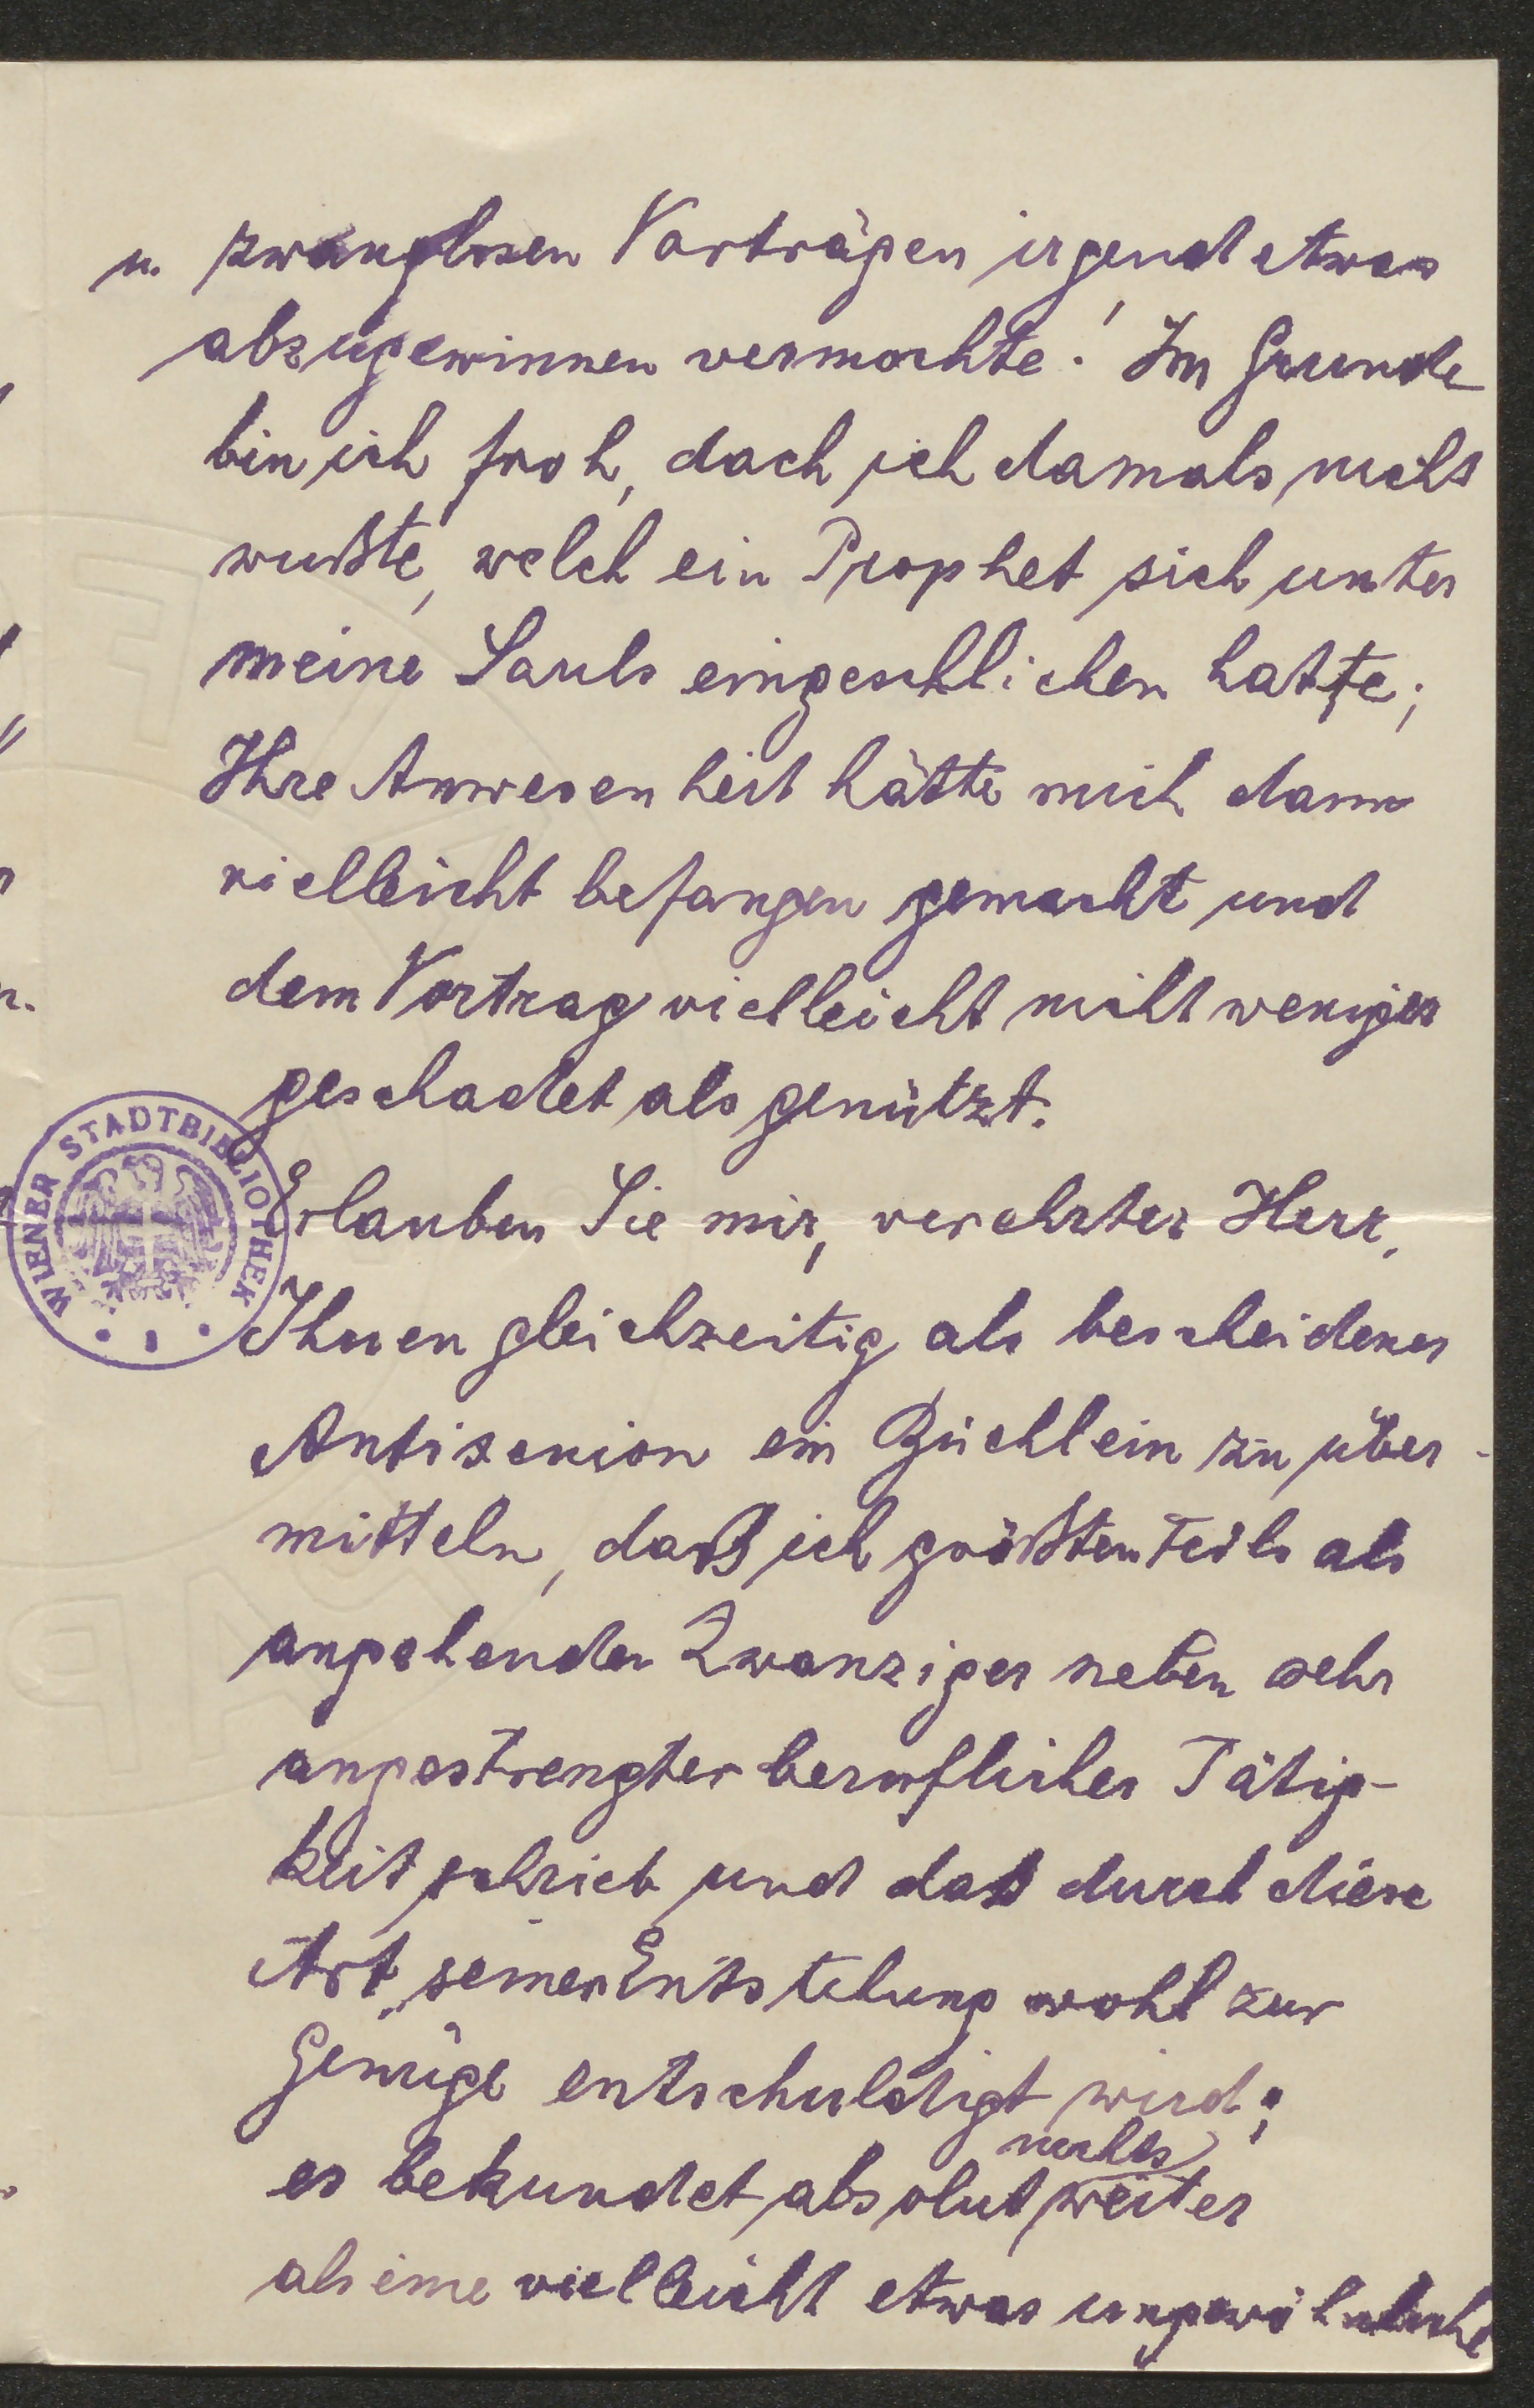 u. zwanglosen Vorträgen irgend etwas
abzugewinnen vermochte! Im Grunde
bin ich froh, dach ich damals nicht
wußte, welch ein Prophet sich unter
meine Sauls eingeschlichen hatte;
Ihre Anwesenheit hätte mich dann
vielleicht befangen gemacht und
dem Vortrag vielleicht nicht weniger
geschadet als genützt.
Erlauben Sie mir, verehrter Herr,
Ihnen gleichzeitig als bescheidenes
ein Büchlein zu über-
mitteln, daß ich größtenteils als
angehender Zwanziger neben sehr
angestrengter beruflicher Tätig-
keit schrieb und das durch diese
Art seiner Entstehung wohl zur
Genüge entschuldigt wird;
nichts
es bekundet absolut weiter
als eine vielleicht etwas ungewöhnliche
WIENER STADTBIBLIOTHEK